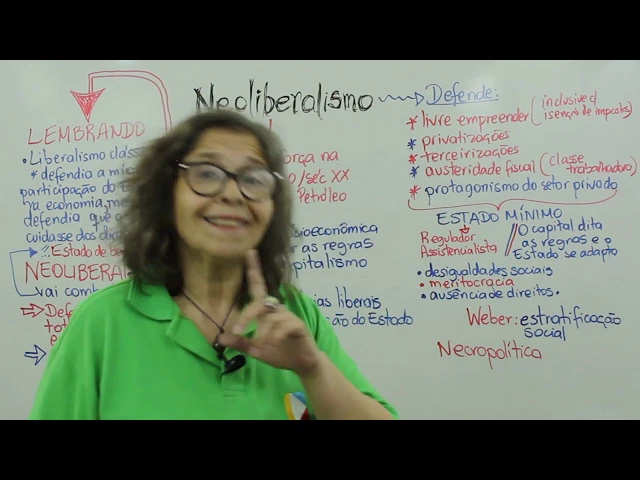 Neoliberalismo
LEMBRANDO
• Liberalismo cláss
* defendia a mín
participação do E
na economia, m
defendia que o
cuidasse dos di
Estado de be
NEOLIBERA
vai comb
Defe
tot
orça na
o/séc XX
Petróleo
sioeconômica
ar as regras
apitalismo
ias liberais
ção do Estado
Defende:
* livre empreender (inclusive c/
isenção de impostos)
* privatizações
* terceirizações
* austeridade fiscal (classe
trabalhadora)
* protagonismo do setor privado
ESTADO MÍNIMO
Regulador
Assistencialista
O capital dita
as regras e o
Estado se adapta
• desigualdades sociais
• meritocracia
• ausência de direitos.
Weber: estratificação
social
Necropolítica